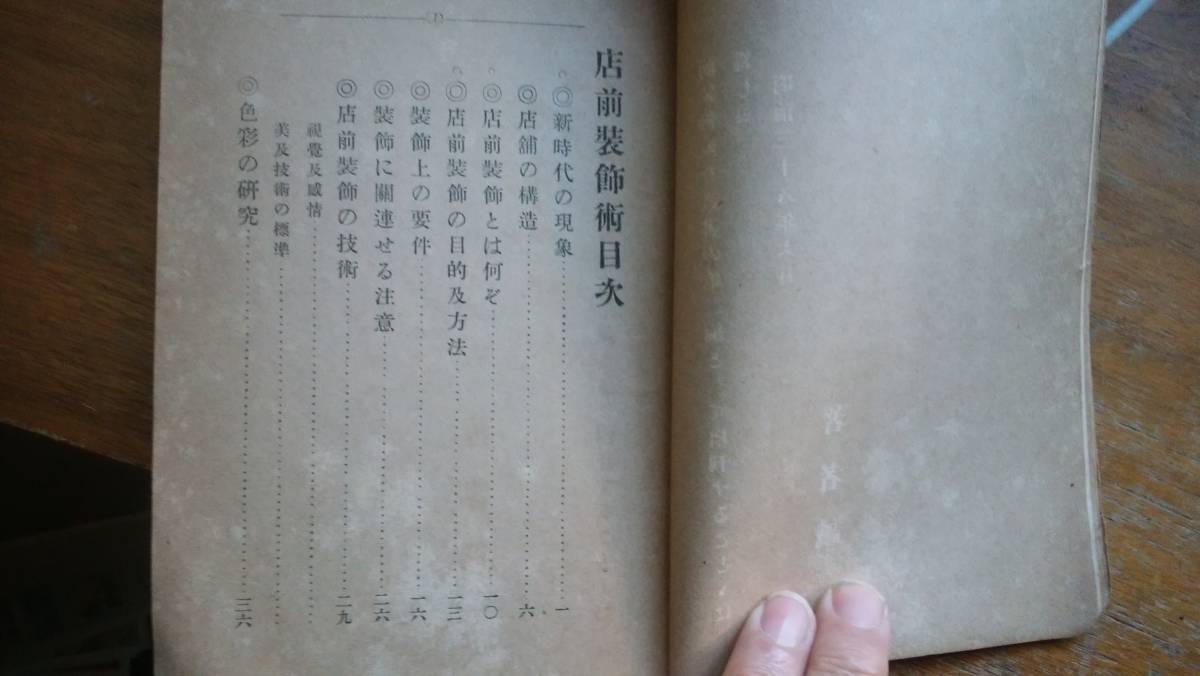 店前裝飾術目次
◎新時代の現象…………一
◎店舗の構造…………六
◎店前裝飾とは何ぞ…………一〇
◎店前裝飾の目的及方法…………一三
◎裝飾上の要件…………一六
◎裝飾に關連せる注意…………二六
◎店前裝飾の技術…………二九
視覺及感情…………
美及技術の標準…………
◎色彩の研究…………三六